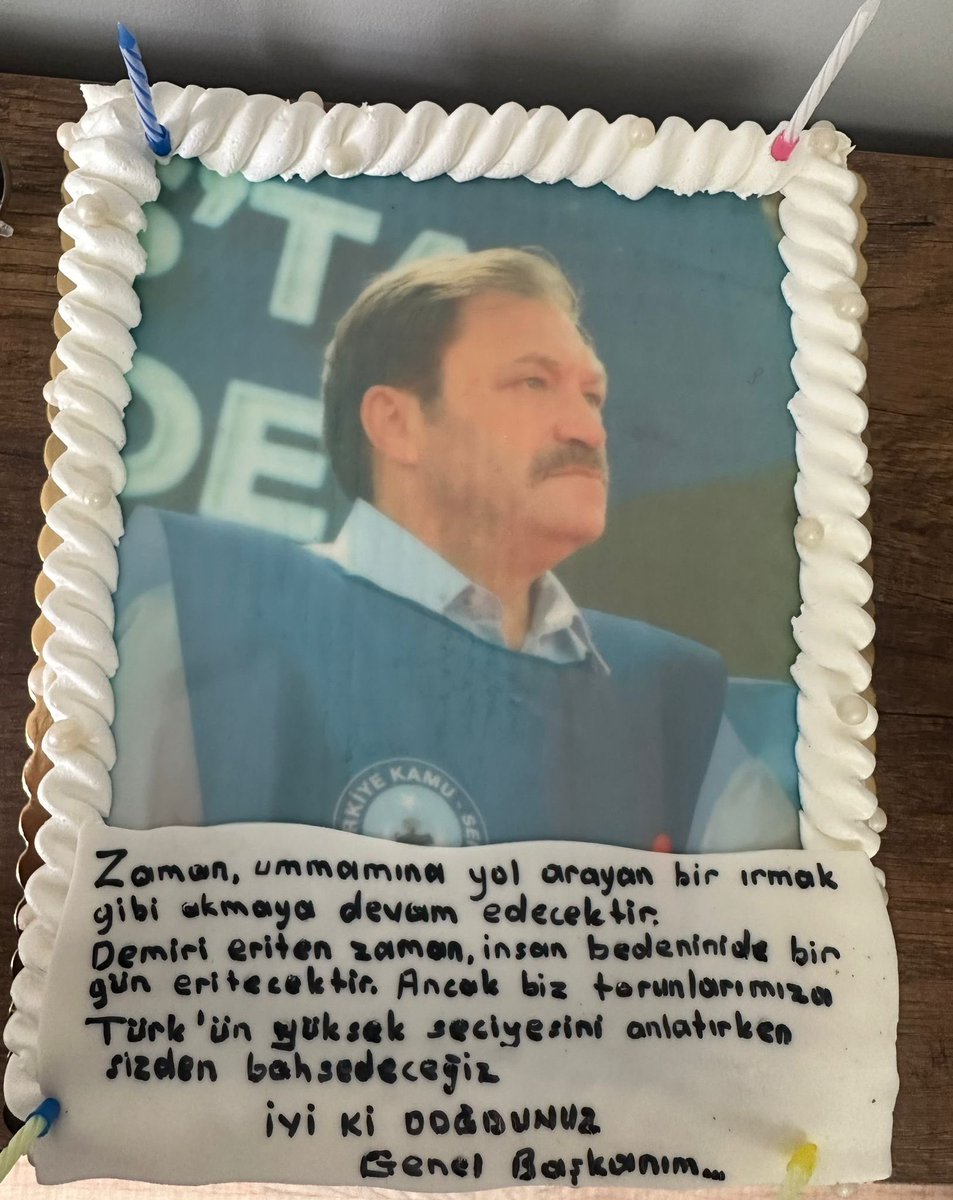 'TA
DE
RKİYE KAMU - SE
Zaman, ummamına yol arayan bir ırmak
gibi akmaya devam edecektir.
Demiri eriten zaman, insan bedeninide bir
gün eritecektir. Ancak biz torunlarımıza
Türk'ün yüksek seciyesini anlatırken
sizden bahsedeceğiz
İYİ Kİ DOĞDUNUZ
Genel Başkanım...